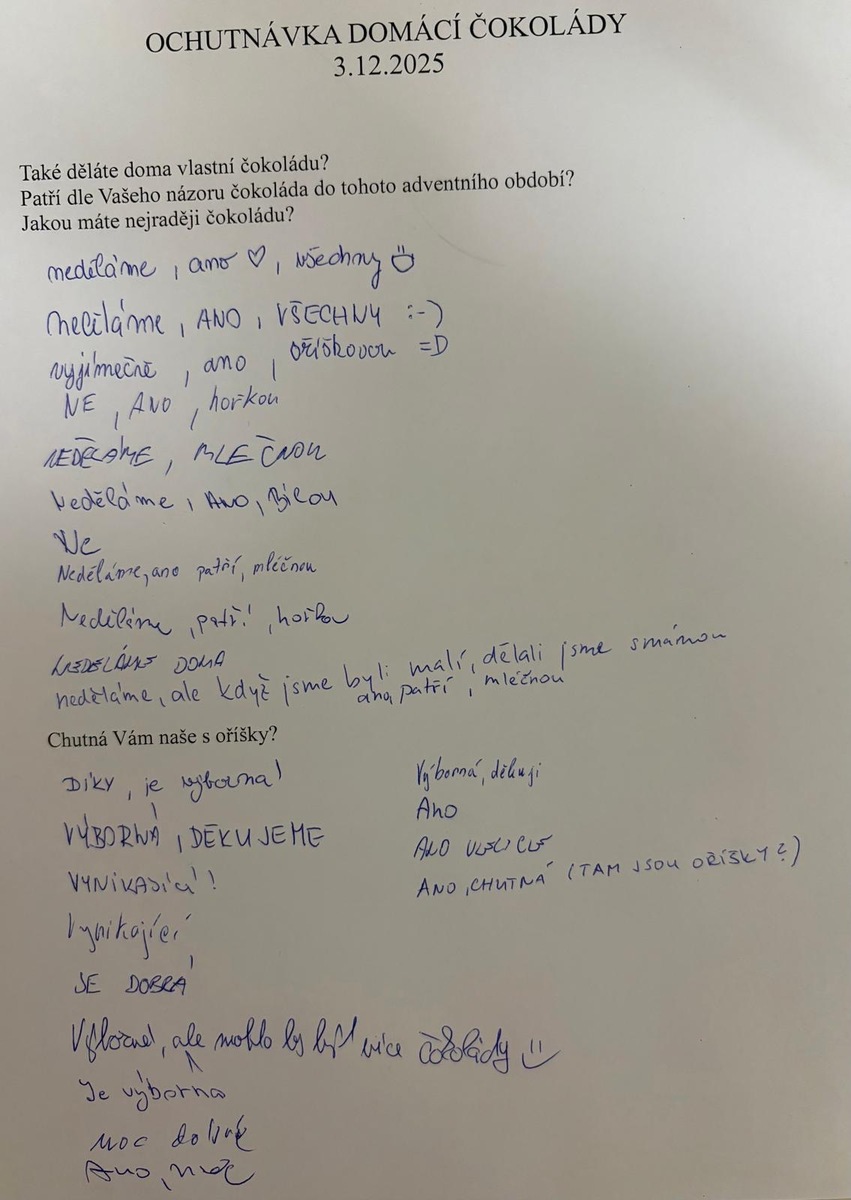 OCHUTNÁVKA DOMÁCÍ ČOKOLÁDY
3.12.2025
Také děláte doma vlastní čokoládu?
Patří dle Vašeho názoru čokoláda do tohoto adventního období?
Jakou máte nejraději čokoládu?
neděláme, ano ♡, všechny
neděláme, ANO, VŠECHNY :-)
vyjímečně, ano, oříškovou =D
NE, ANO, horkou
NEDĚLÁME, MLEČNOU
Neděláme, ANO, Bílou
Ne
Neděláme, ano patří, mléčnou
Neděláme, patří, hořkou
NEDĚLÁME DOMA
neděláme, ale když jsme byli malí, dělali jsme s mámou
ano, patří, mléčnou
Chutná Vám naše s oříšky?
DÍKY, je výborná!
VÝBORNÁ, DĚKUJEME
VYNIKAJÍCÍ!
Vynikající
JE DOBRÁ
Výborná, ale mohlo by být více čokolády
Je výborná
moc dobrá
Ano, moc
Výborná, děkuji
Ano
ANO VELICE
ANO, CHUTNÁ (TAM JSOU OŘÍŠKY?)